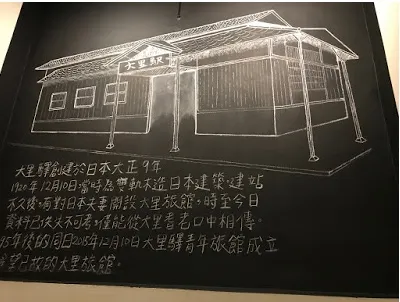 大里駅
大里驛創建於日本大正9年
1920年12月10日,當時為雙軌木造日本建築,建站
不久後,有對日本夫妻開設大里旅館,時至今日
資料已佚失不可考,僅能從大里耆老口中相傳。
95年後的同日2015年12月10日大里驛青年旅館成立
已故的大里旅館。